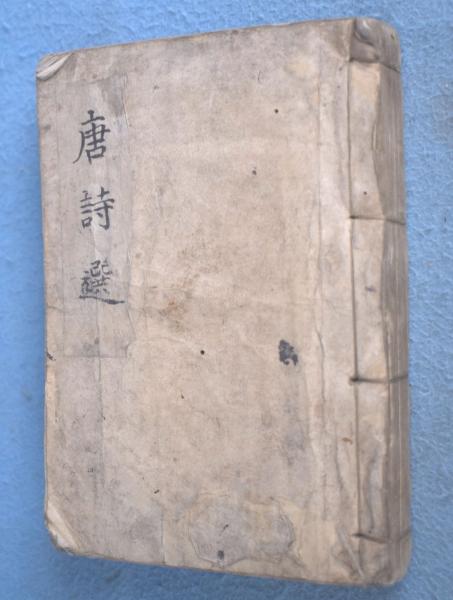 唐詩選